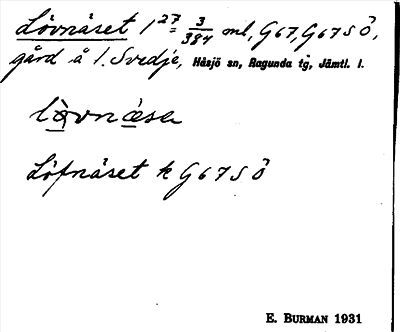 Lövnäset 1²⁷ = 3/384 ml, G67, G67SÖ,
gård å 1. Svedje, Håsjö sn, Ragunda tg, Jämtl. l.
lövnäsa
Löfnäset k G67SÖ
E. BURMAN 1931